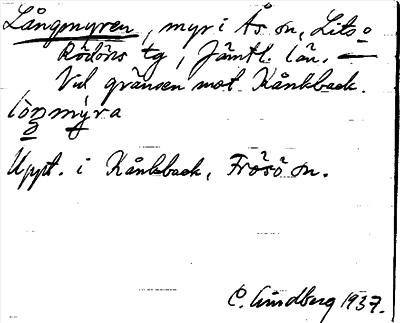 Långmyren, myr i Ås sn, Lits o
Rödöns tg, Jämtl. län. —
Vid gränsen mot Kånkback.
lòṉmýra
Uppt. i Kånkback, Frösö sn.
C. Lindberg 1937.